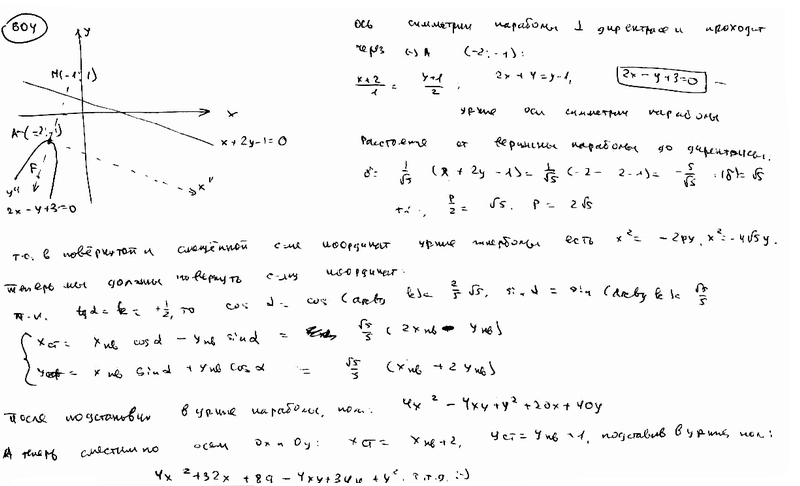 804
y
Ось симметрии параболы ⊥ директрисе и проходит
N(-1; 1)
через (·) A (-2; -1):
(x+2)/1 = (y+1)/2; 2x + 4 = y - 1, 2x - y + 3 = 0 —
x
A (-2; -1)
ур-ние оси симметрии параболы
x + 2y - 1 = 0
Расстояние от вершины параболы до директрисы.
F
δ = 1/√5 (x + 2y - 1) = 1/√5 (-2 - 2 - 1) = -5/√5 : |δ| = √5
y"
x"
2x - y + 3 = 0
p/2 = √5. p = 2√5
т.о. в повёрнутой и смещённой с-ме координат ур-ние гиперболы есть x² = -2py, x² = -4√5y.
Теперь мы должны повернуть с-му координат.
т.к. tg α = k = +1/2, то cos α = cos (arctg k) = 2/5 √5, sin α = sin (arctg k) = √5/5
x ст = x нв cos α - y нв sin α = √5/5 (2x нв - y нв)
y ст = x нв sin α + y нв cos α = √5/5 (x нв + 2y нв)
После подстановки в ур-ние параболы, пол: 4x² - 4xy + y² + 20x + 40y
А теперь сместим по осям Ox и Oy: x ст = x нв + 2, y ст = y нв + 1, подставив в ур-ние, пол:
4x² + 32x + 89 - 4xy + 34y + y². ч.т.д. :-)